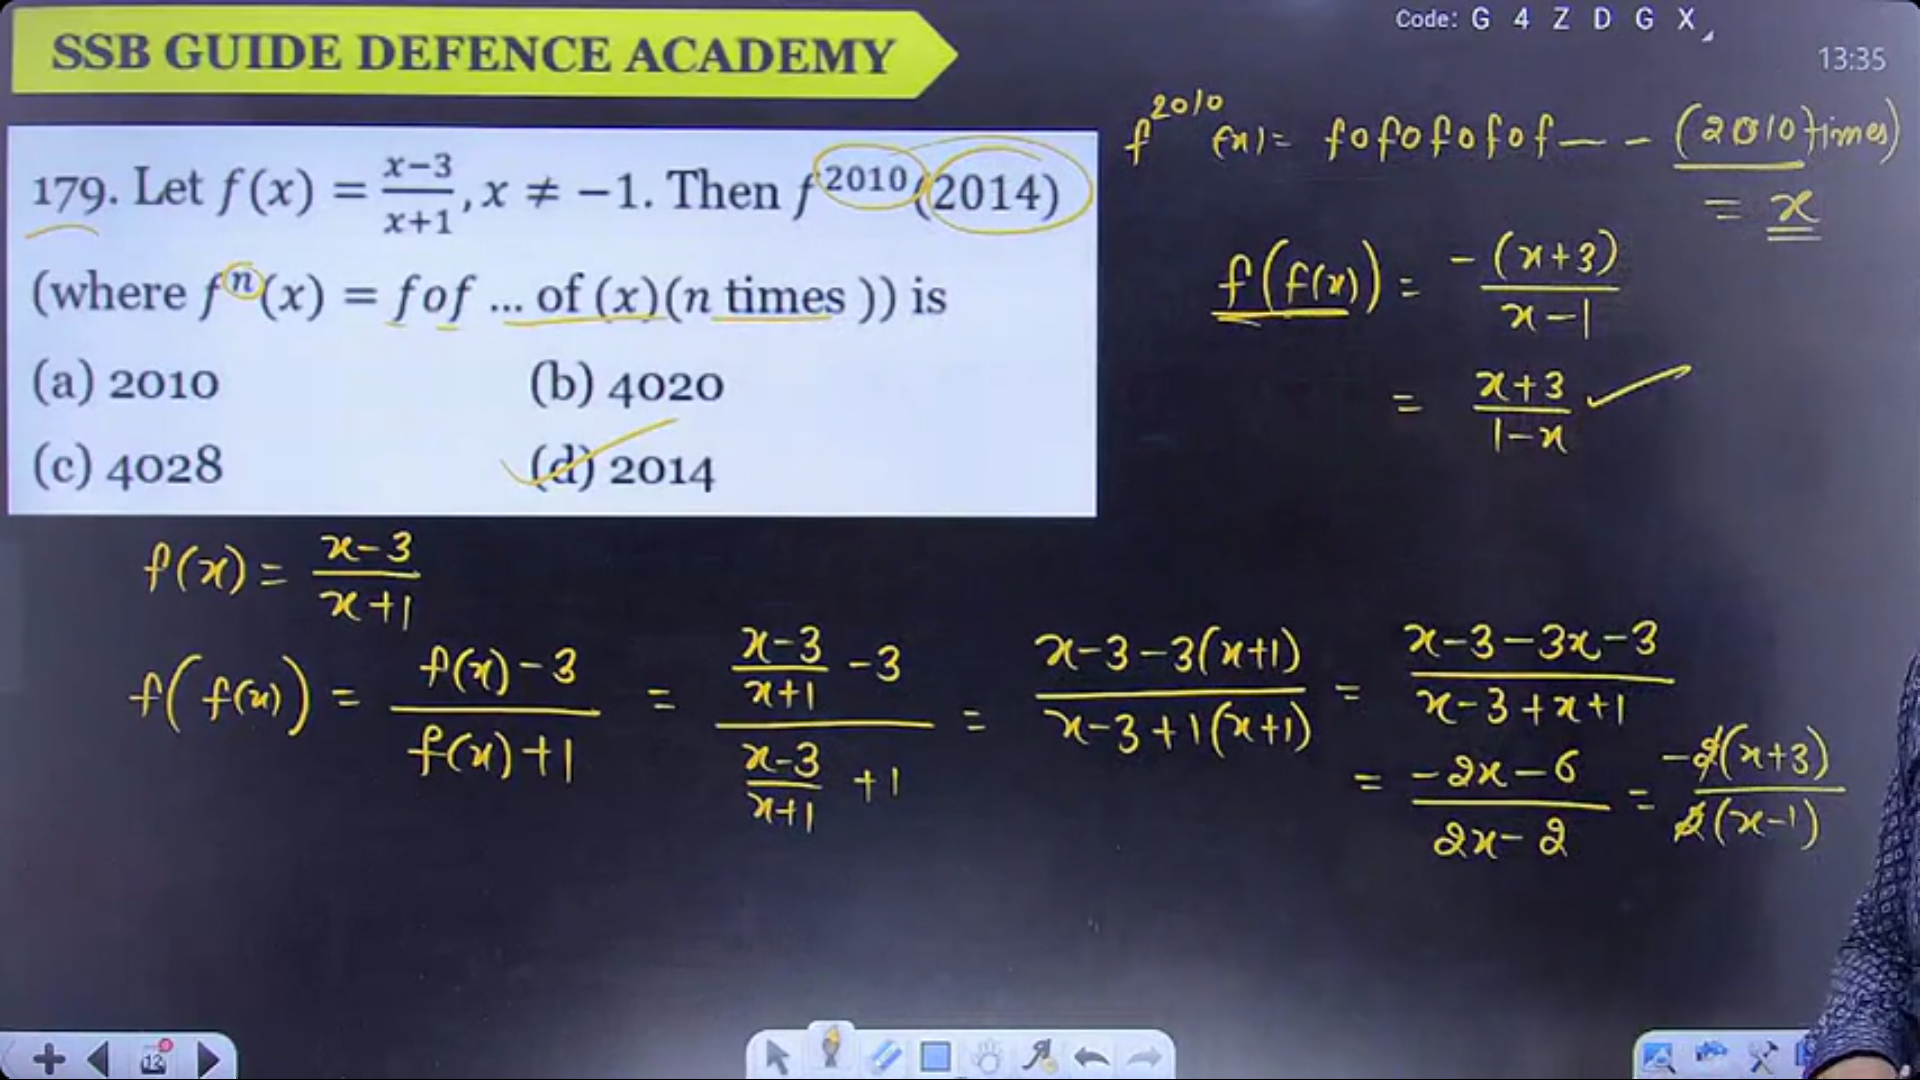 Code: G 4 Z D G X
13:35
SSB GUIDE DEFENCE ACADEMY
179. Let f(x) = (x−3)/(x+1), x ≠ −1. Then f^2010(2014)
(where f^n(x) = fof ... of (x)(n times )) is
(a) 2010 (b) 4020
(c) 4028 (d) 2014
f^2010 (x) = fofofofof — - (2010 times)
= x
f(f(x)) = -(x+3)/(x-1)
= (x+3)/(1-x)
f(x) = (x-3)/(x+1)
f(f(x)) = (f(x)-3)/(f(x)+1) = ((x-3)/(x+1) -3)/((x-3)/(x+1) +1) = (x-3-3(x+1))/(x-3+1(x+1)) = (x-3-3x-3)/(x-3+x+1)
= (-2x-6)/(2x-2) = -2(x+3)/2(x-1)
12